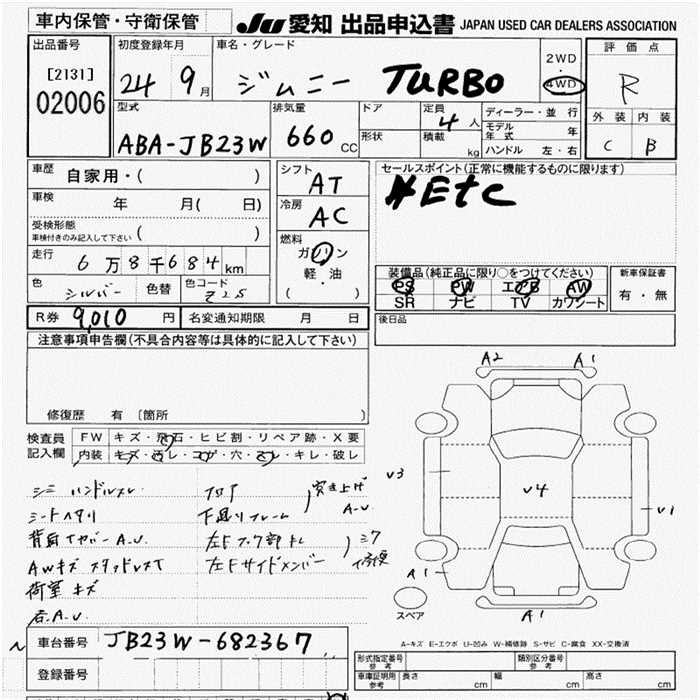 車内保管・守衛保管
JU 愛知 出品申込書 JAPAN USED CAR DEALERS ASSOCIATION
出品番号 初度登録年月 車名・グレード 2WD・4WD 評価点
[2131] 02006 24 9月 ジムニー TURBO R
型式 排気量 ドア 定員 4人 ディーラー・並行 外装 内装
ABA-JB23W 660 CC 形状 積載 kg モデル年式 年 C B
ハンドル 左・右
車歴 自家用・( ) シフト AT セールスポイント(正常に機能するものに限ります)
車検 年 月( 日) 冷房 AC #Etc
受検形態 車検付きのみ記入して下さい ( )
走行 6万8千684km 燃料 ガソリン 軽・油 ( )
装備品(純正品に限り○をつけてください) 新車保証書
PS PW エアB AW 有・無
SR ナビ TV カワシート
色 シルバー 色替 色コード Z2S
R券 9,010円 名変通知期限 月 日 後日品
注意事項申告欄(不具合内容等は具体的に記入して下さい)
修復歴 有 [箇所 ]
A2 A1
検査員記入欄 FW キズ・飛石・ヒビ割・リペア跡・X要
内装 キズ・汚レ・コゲ・穴・スレ・キレ・破レ
V3 V4 V1
シミ ハンドルスレ フロア 突き上げ A-U
シートヘタリ 下廻りフレーム
A.U. 左F
AWキズ 左Fサイドメンバー
荷室キズ
A.U.
A1 スペア A1
車台番号 JB23W-682367
A-キズ E-エクボ U-凹み W-補修跡 S-サビ C-腐食 XX-交換済
登録番号
形式指定番号 参考 類別区分番号 参考
車庫証明用 参考 長さ cm 幅 cm 高さ cm